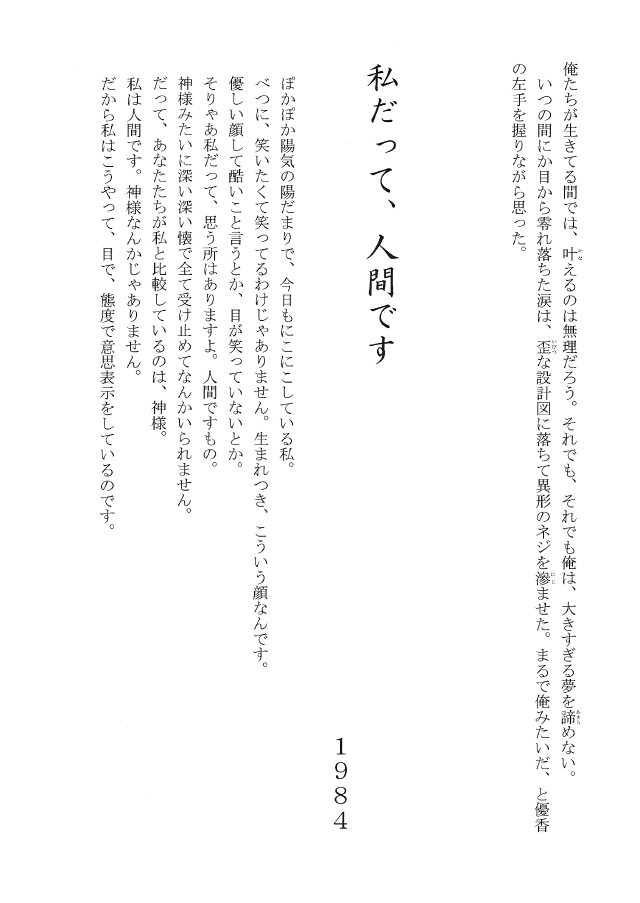 俺たちが生きてる間では、叶えるのは無理だろう。それでも、それでも俺は、大きすぎる夢を諦めない。
いつの間にか目から零れ落ちた涙は、歪な設計図に落ちて異形のネジを滲ませた。まるで俺みたいだ、と優香
の左手を握りながら思った。
私だって、人間です
1984
ぽかぽか陽気の陽だまりで、今日もにこにこしている私。
べつに、笑いたくて笑ってるわけじゃありません。生まれつき、こういう顔なんです。
優しい顔して酷いこと言うとか、目が笑っていないとか。
そりゃあ私だって、思う所はありますよ。人間ですもの。
神様みたいに深い深い懐で全て受け止めてなんかいられません。
だって、あなたたちが私と比較しているのは、神様。
私は人間です。神様なんかじゃありません。
だから私はこうやって、目で、態度で意思表示をしているのです。